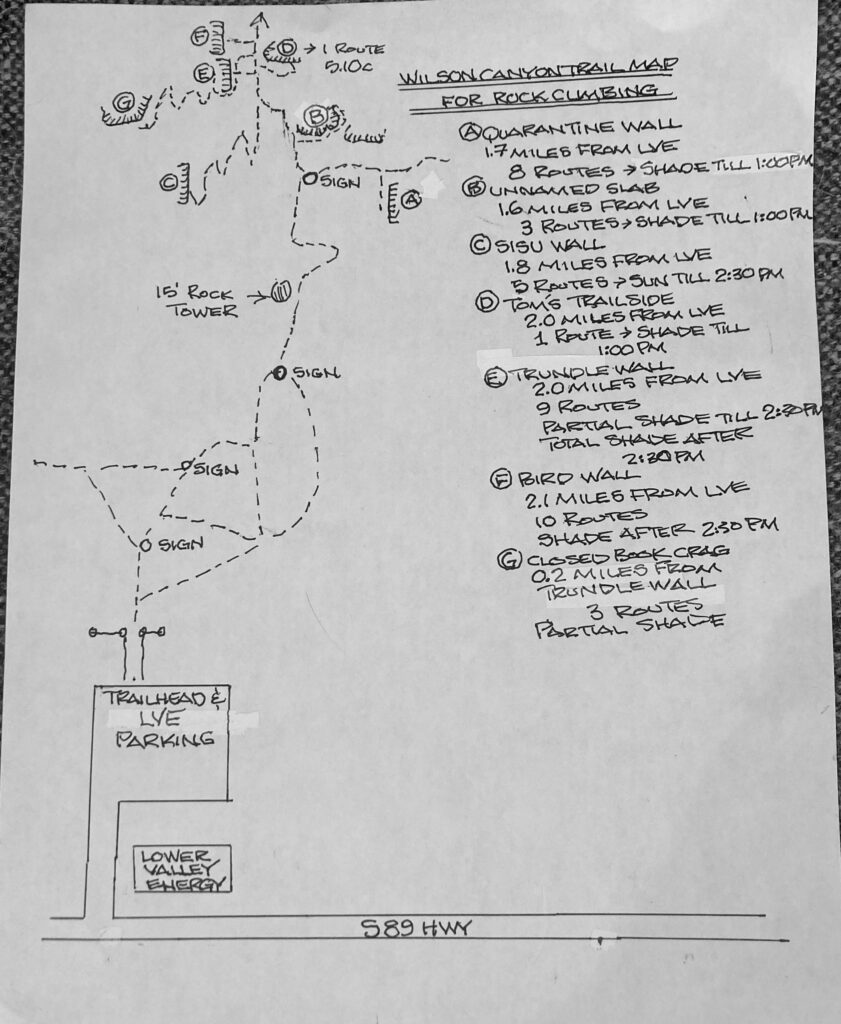 F
D → 1 ROUTE
5.10c
E
G
B
C
SIGN
A
15' ROCK
TOWER
SIGN
SIGN
SIGN
TRAILHEAD &
LVE
PARKING
LOWER
VALLEY
ENERGY
S 89 HWY
WILSON CANYON TRAIL MAP
FOR ROCK CLIMBING
A QUARANTINE WALL
1.7 MILES FROM LVE
8 ROUTES → SHADE TILL 1:00 PM
B UNNAMED SLAB
1.6 MILES FROM LVE
3 ROUTES → SHADE TILL 1:00 PM
C SISU WALL
1.8 MILES FROM LVE
5 ROUTES → SUN TILL 2:30 PM
D TOM'S TRAILSIDE
2.0 MILES FROM LVE
1 ROUTE → SHADE TILL
1:00 PM
E TRUNDLE WALL
2.0 MILES FROM LVE
9 ROUTES
PARTIAL SHADE TILL 2:30 PM
TOTAL SHADE AFTER
2:30 PM
F BIRD WALL
2.1 MILES FROM LVE
10 ROUTES
SHADE AFTER 2:30 PM
G CLOSED BOOK CRAG
0.2 MILES FROM
TRUNDLE WALL
3 ROUTES
PARTIAL SHADE